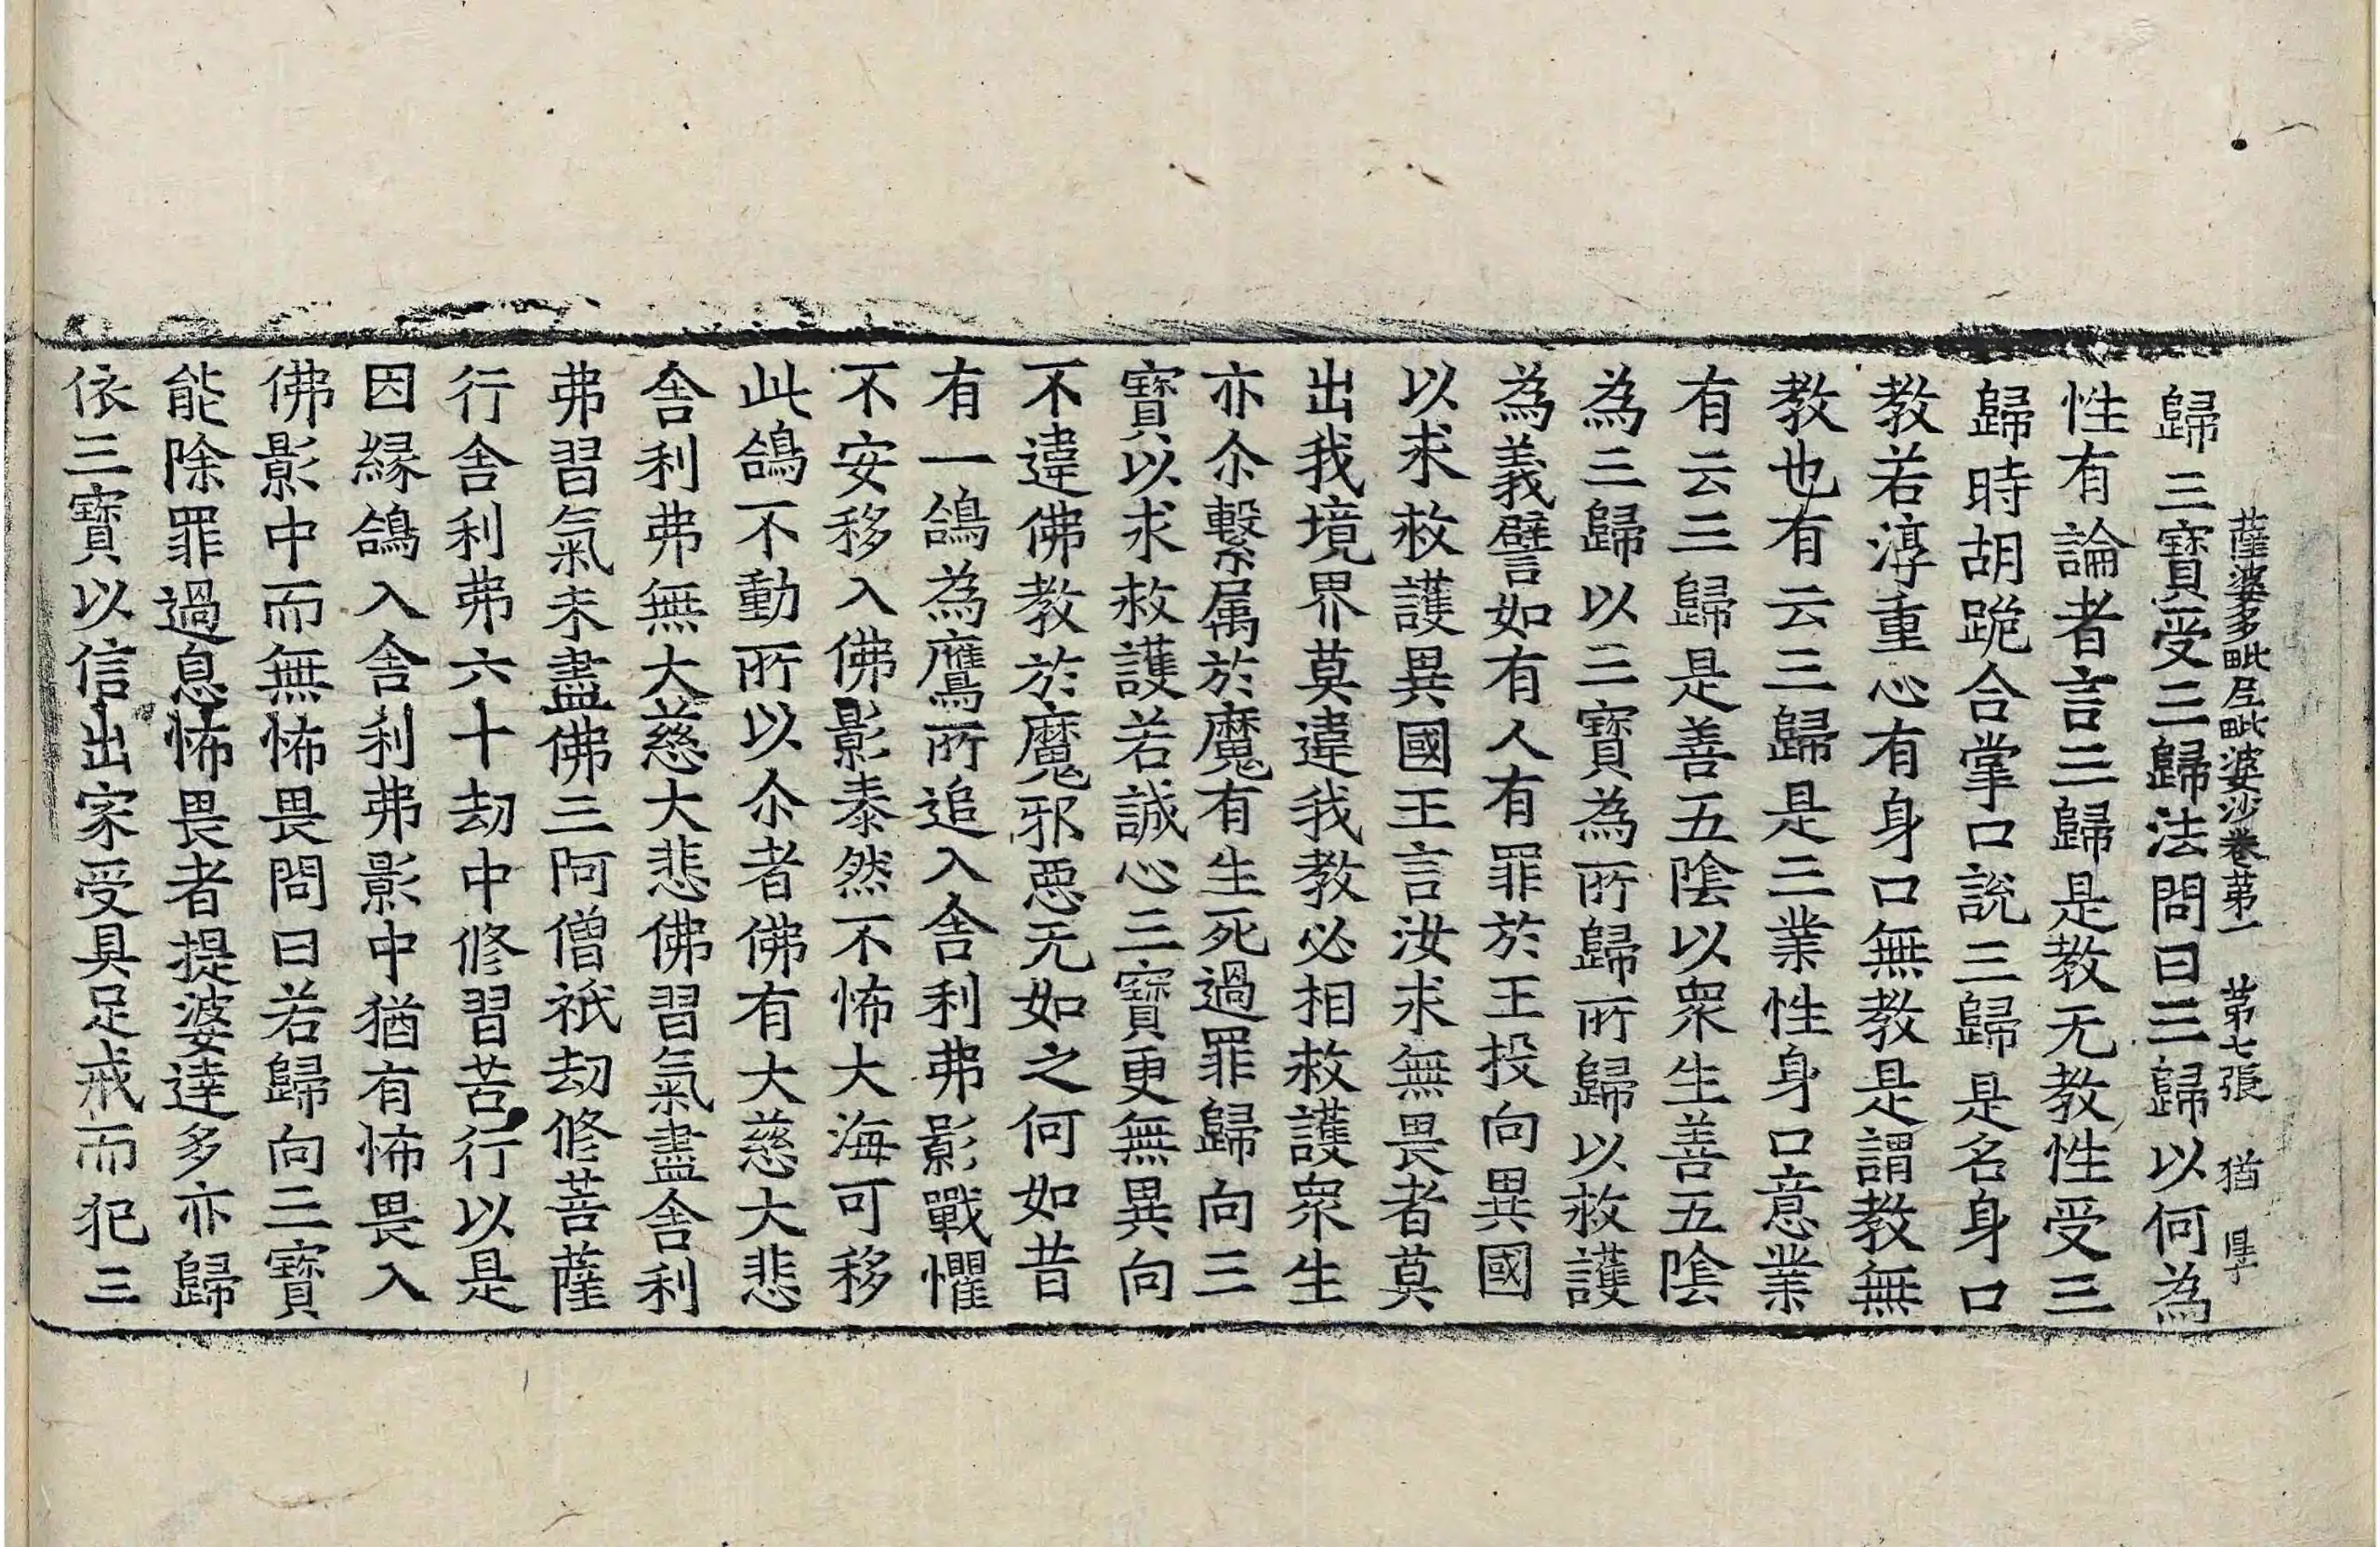 薩婆多毗尼毗婆沙卷苐一 苐七張 猶
歸三寶受三歸法問曰三歸以何為
性有論者言三歸是教无教性受三
歸時胡跪合掌口說三歸是名身口
教若淳重心有身口無教是謂教無
教也有云三歸是三業性身口意業
有云三歸是善五陰以衆生善五陰
為三歸以三寶為所歸所歸以救護
為義譬如有人有罪於王投向異國
以求救護異國王言汝求無畏者莫
出我境界莫違我教必相救護衆生
亦尒繫属於魔有生死過罪歸向三
寶以求救護若誠心三寶更無異向
不違佛教於魔邪惡无如之何如昔
有一鴿為鷹所追入舍利弗影戰懼
不安移入佛影泰然不怖大海可移
此鴿不動所以尒者佛有大慈大悲
舍利弗無大慈大悲佛習氣盡舍利
弗習氣未盡佛三阿僧祇劫修菩薩
行舍利弗六十劫中修習苦行以是
因緣鴿入舍利弗影中猶有怖畏入
佛影中而無怖畏問曰若歸向三寶
能除罪過息怖畏者提婆達多亦歸
依三寶以信出家受具足戒而犯三